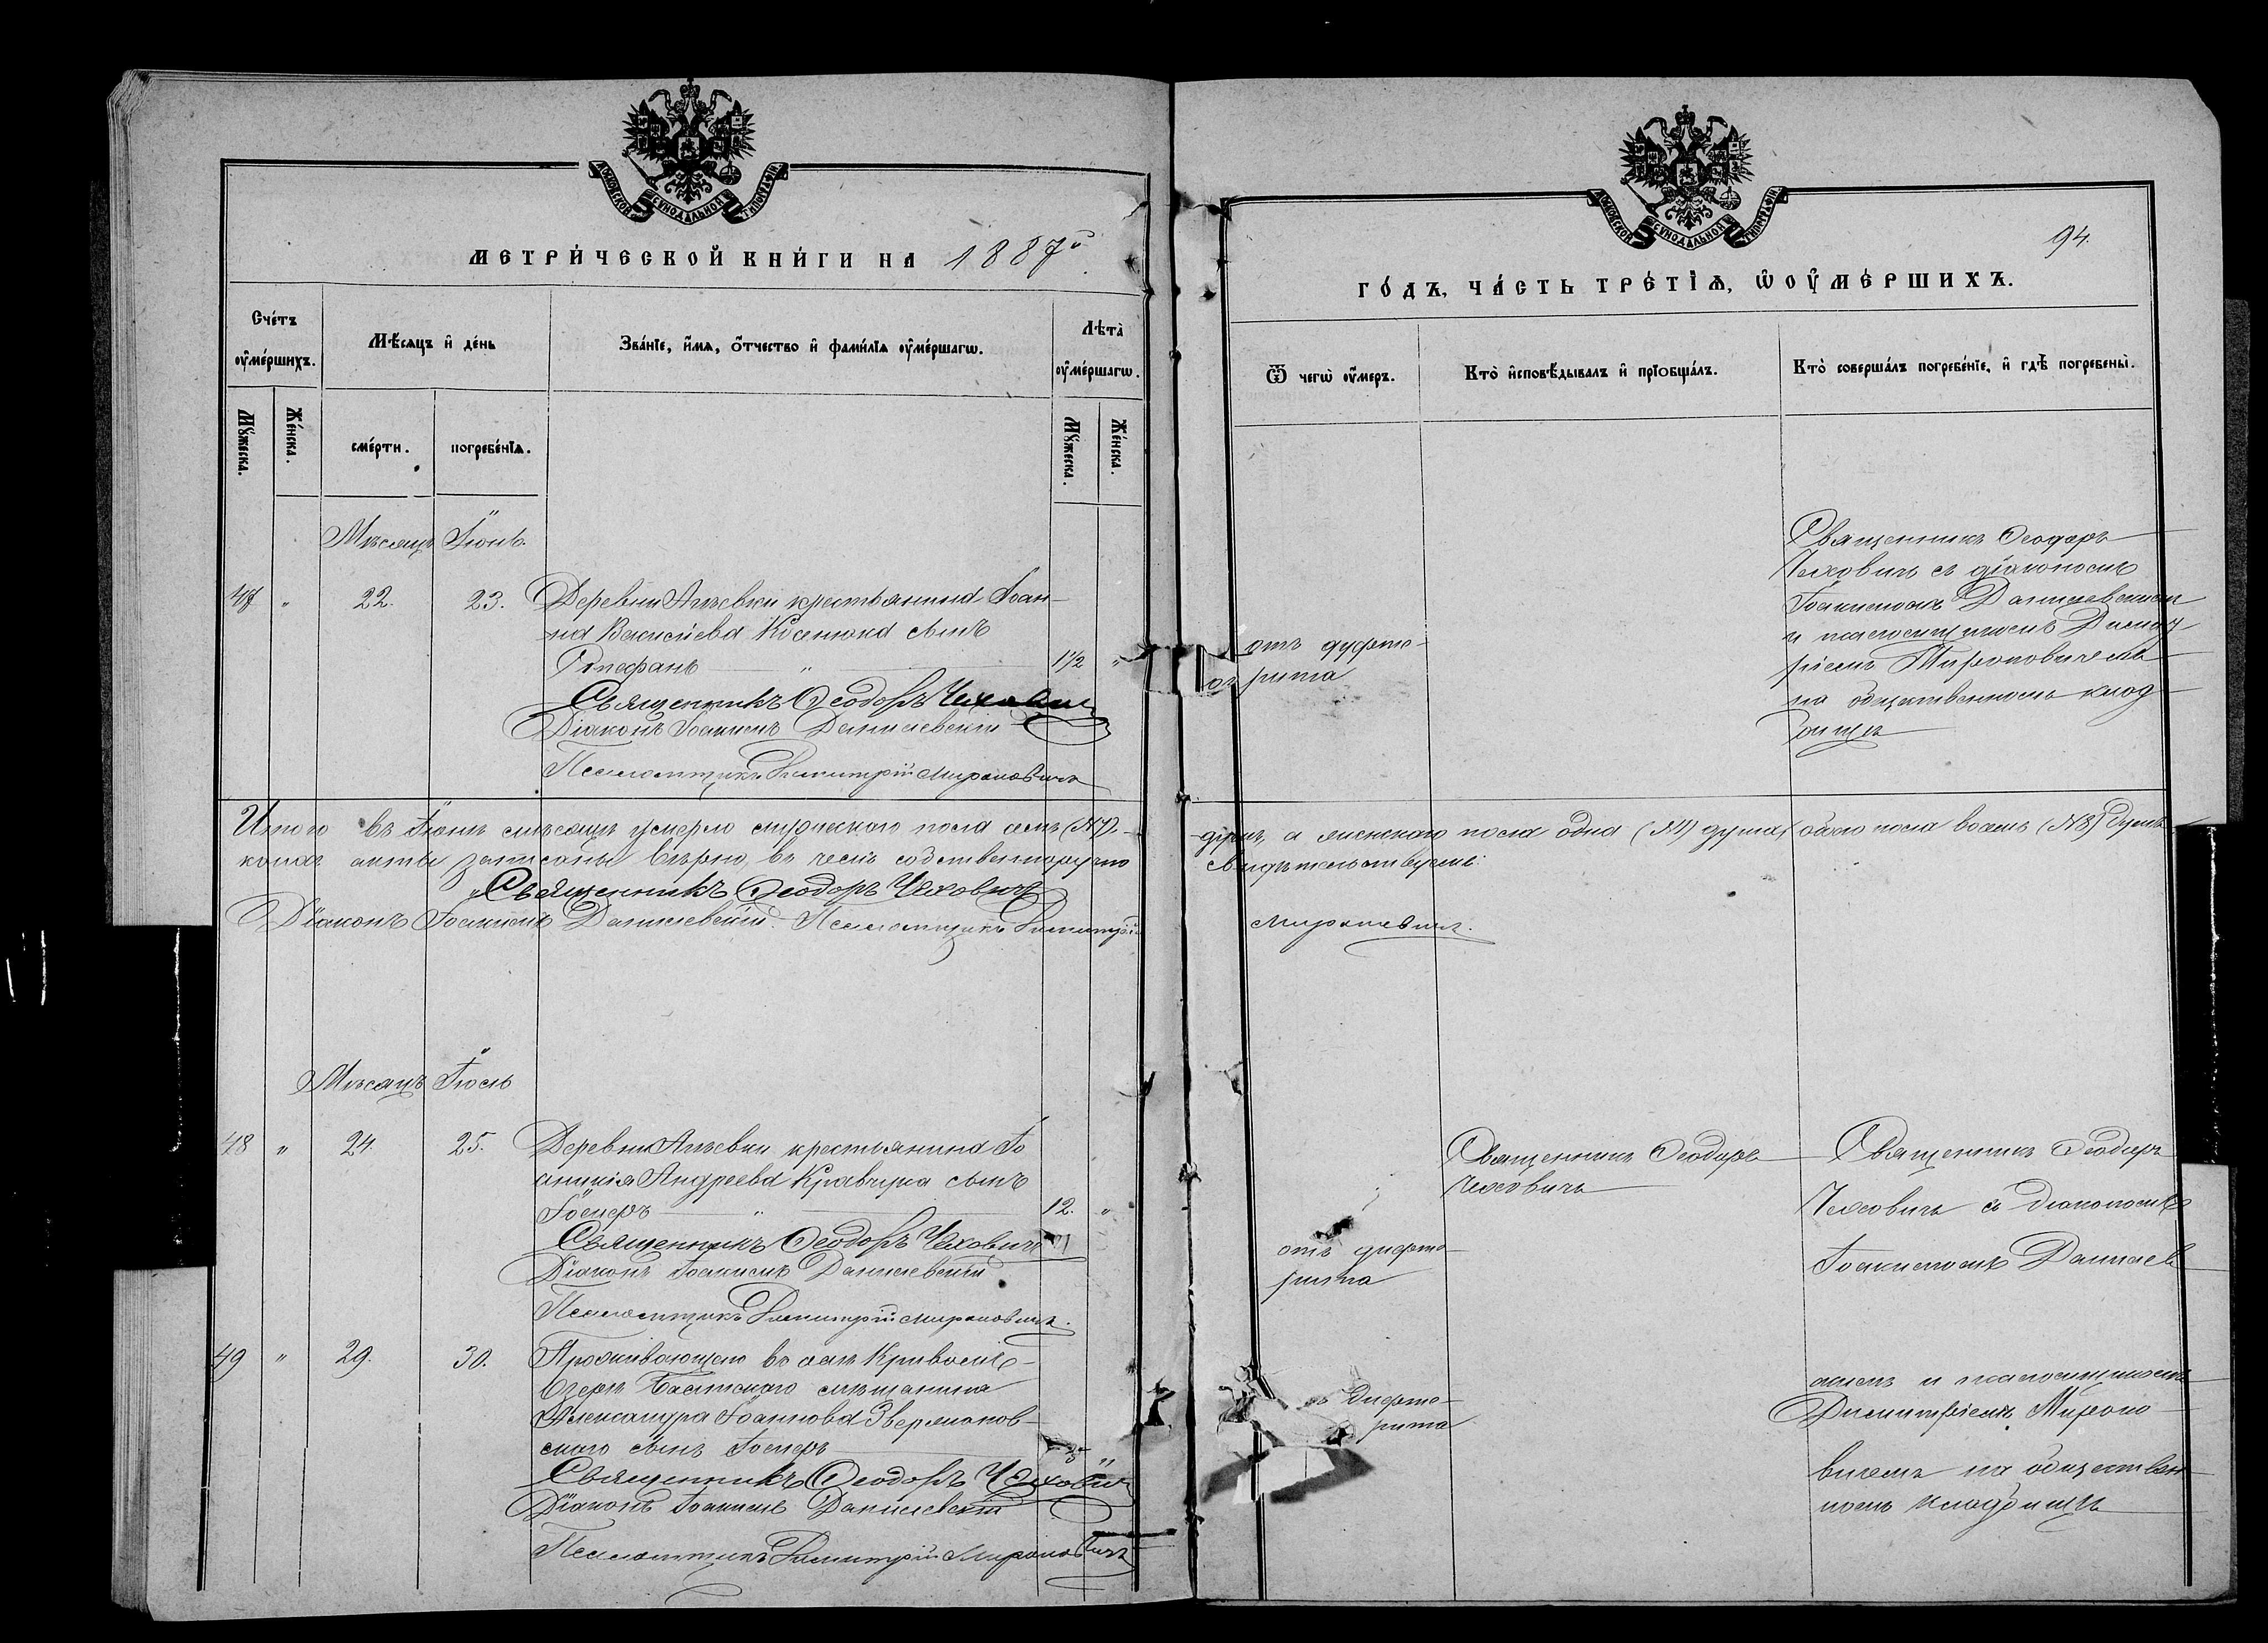 МОСКОВСКОЙ СѴНОДАЛЬНОЙ ТИПОГРАФІИ
МЕТРИ́ЧЕСКОЙ КНИ́ГИ НА 1887й
Сче́тъ ᲂу҆ме́ршихъ.
Мѣ́сяцъ и҆ де́нь
Зва́нїе, и҆́мѧ, ѻ҆́тчество и҆ фами́лїѧ ᲂу҆ме́ршагѡ.
Лѣта̀ ᲂу҆ме́ршагѡ.
Мꙋ́жеска.
Же́нска.
сме́рти.
погребе́нїѧ.
Мꙋ́жеска.
Же́нска.
Мѣсяцъ Іюнь.
47 " 22. 23. Деревни Анъевки крестьянина Іоан-
на Васильева Косенюка сынъ
Стефанъ " 1½ "
Священникъ Ѳеодоръ Чехович
Діаконъ Іоакимъ Данилевскій
Псаломщикъ Димитрій Мироновичъ
Итого въ Іюнѣ мѣсяцѣ умерло мужескаго пола семь (№7)-
коихъ акты записаны вѣрно, въ чемъ собственноручно
Священникъ Ѳеодоръ Чеховичъ
Діаконъ Іоакимъ Данилевскій. Псаломщикъ Димитрій
Мѣсяцъ Іюль
48 " 24. 25. Деревни Анъевки крестьянина Іо
анникія Андреева Кравчука сынъ
Іосифъ " 12. "
Священникъ Ѳеодоръ Чеховичъ
Діаконъ Іоакимъ Данилевскій
Псаломщикъ Димитрій Мироновичъ.
49 " 29. 30. Проживающаго въ селѣ Кривомъ-
Озерѣ Балтскаго мѣщанина
Александра Іоаннова Звермановс-
скаго сынъ Іосифъ "
Священникъ Ѳеодоръ Чехович
Діаконъ Іоакимъ Данилевскій
Псаломщикъ Димитрій Мироновичъ
МОСКОВСКОЙ СѴНОДАЛЬНОЙ ТИПОГРАФІИ
94.
ГО́ДЪ, ЧА́СТЬ ТРЕ́ТЇѦ, Ѡ ОУ҆МЕ́РШИХЪ.
Ѿ чегѡ̀ ᲂу҆́меръ.
Кто̀ и҆сповѣ́дывалъ и҆ прїѡбща́лъ.
Кто̀ соверша́лъ погребе́нїе, и҆ гдѣ̀ погребены̀.
отъ дифте-
рита
Священникъ Ѳеодоръ
Чеховичъ съ діакономъ
Іоакимомъ Данилевскимъ
и псаломщикомъ Димит-
ріемъ Мироновичемъ
на общественномъ клад-
бищѣ
душъ, а женскаго пола одна (№1) душа, обоего пола восемь (№8) душъ
свидѣтельствуемъ:
Мироновичъ.
отъ дифте-
рита
Священникъ Ѳеодоръ
Чеховичъ
Священникъ Ѳеодоръ
Чеховичъ съ діакономъ
Іоакимомъ Данилев
скимъ и псаломщикомъ
Димитріемъ Мироно-
вичемъ на обществен-
номъ кладбищѣ
ъ дифте-
рита